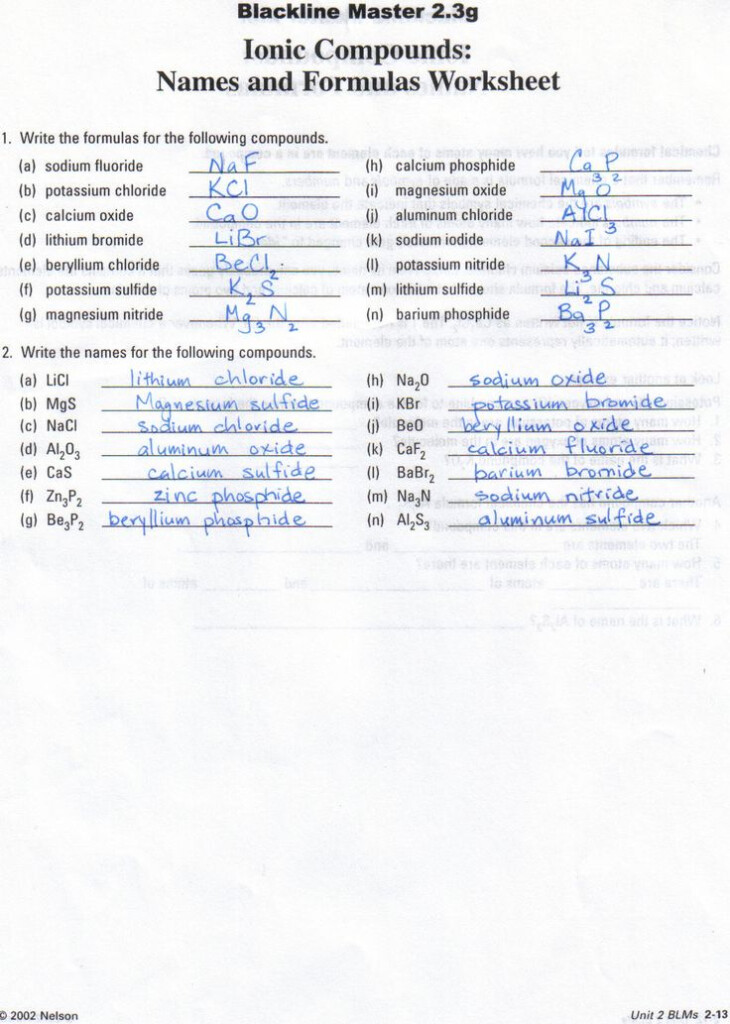 Blackline Master 2.3g
Ionic Compounds:
Names and Formulas Worksheet
1. Write the formulas for the following compounds.
(a) sodium fluoride NaF
(b) potassium chloride KCl
(c) calcium oxide CaO
(d) lithium bromide LiBr
(e) beryllium chloride BeCl₂
(f) potassium sulfide K₂S
(g) magnesium nitride Mg₃N₂
(h) calcium phosphide Ca₃P₂
(i) magnesium oxide MgO
(j) aluminum chloride AlCl₃
(k) sodium iodide NaI
(l) potassium nitride K₃N
(m) lithium sulfide Li₂S
(n) barium phosphide Ba₃P₂
2. Write the names for the following compounds.
(a) LiCl lithium chloride
(b) MgS Magnesium sulfide
(c) NaCl sodium chloride
(d) Al₂O₃ aluminum oxide
(e) CaS calcium sulfide
(f) Zn₃P₂ zinc phosphide
(g) Be₃P₂ beryllium phosphide
(h) Na₂O sodium oxide
(i) KBr potassium bromide
(j) BeO beryllium oxide
(k) CaF₂ calcium fluoride
(l) BaBr₂ barium bromide
(m) Na₃N sodium nitride
(n) Al₂S₃ aluminum sulfide
© 2002 Nelson
Unit 2 BLMs 2-13